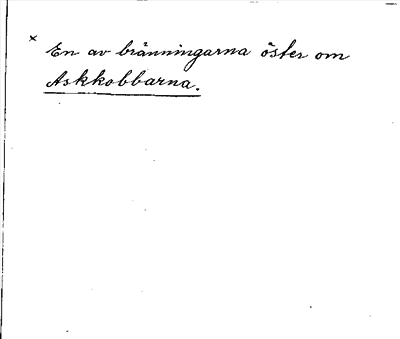 × En av bränningarna öster om
Askkobbarna.